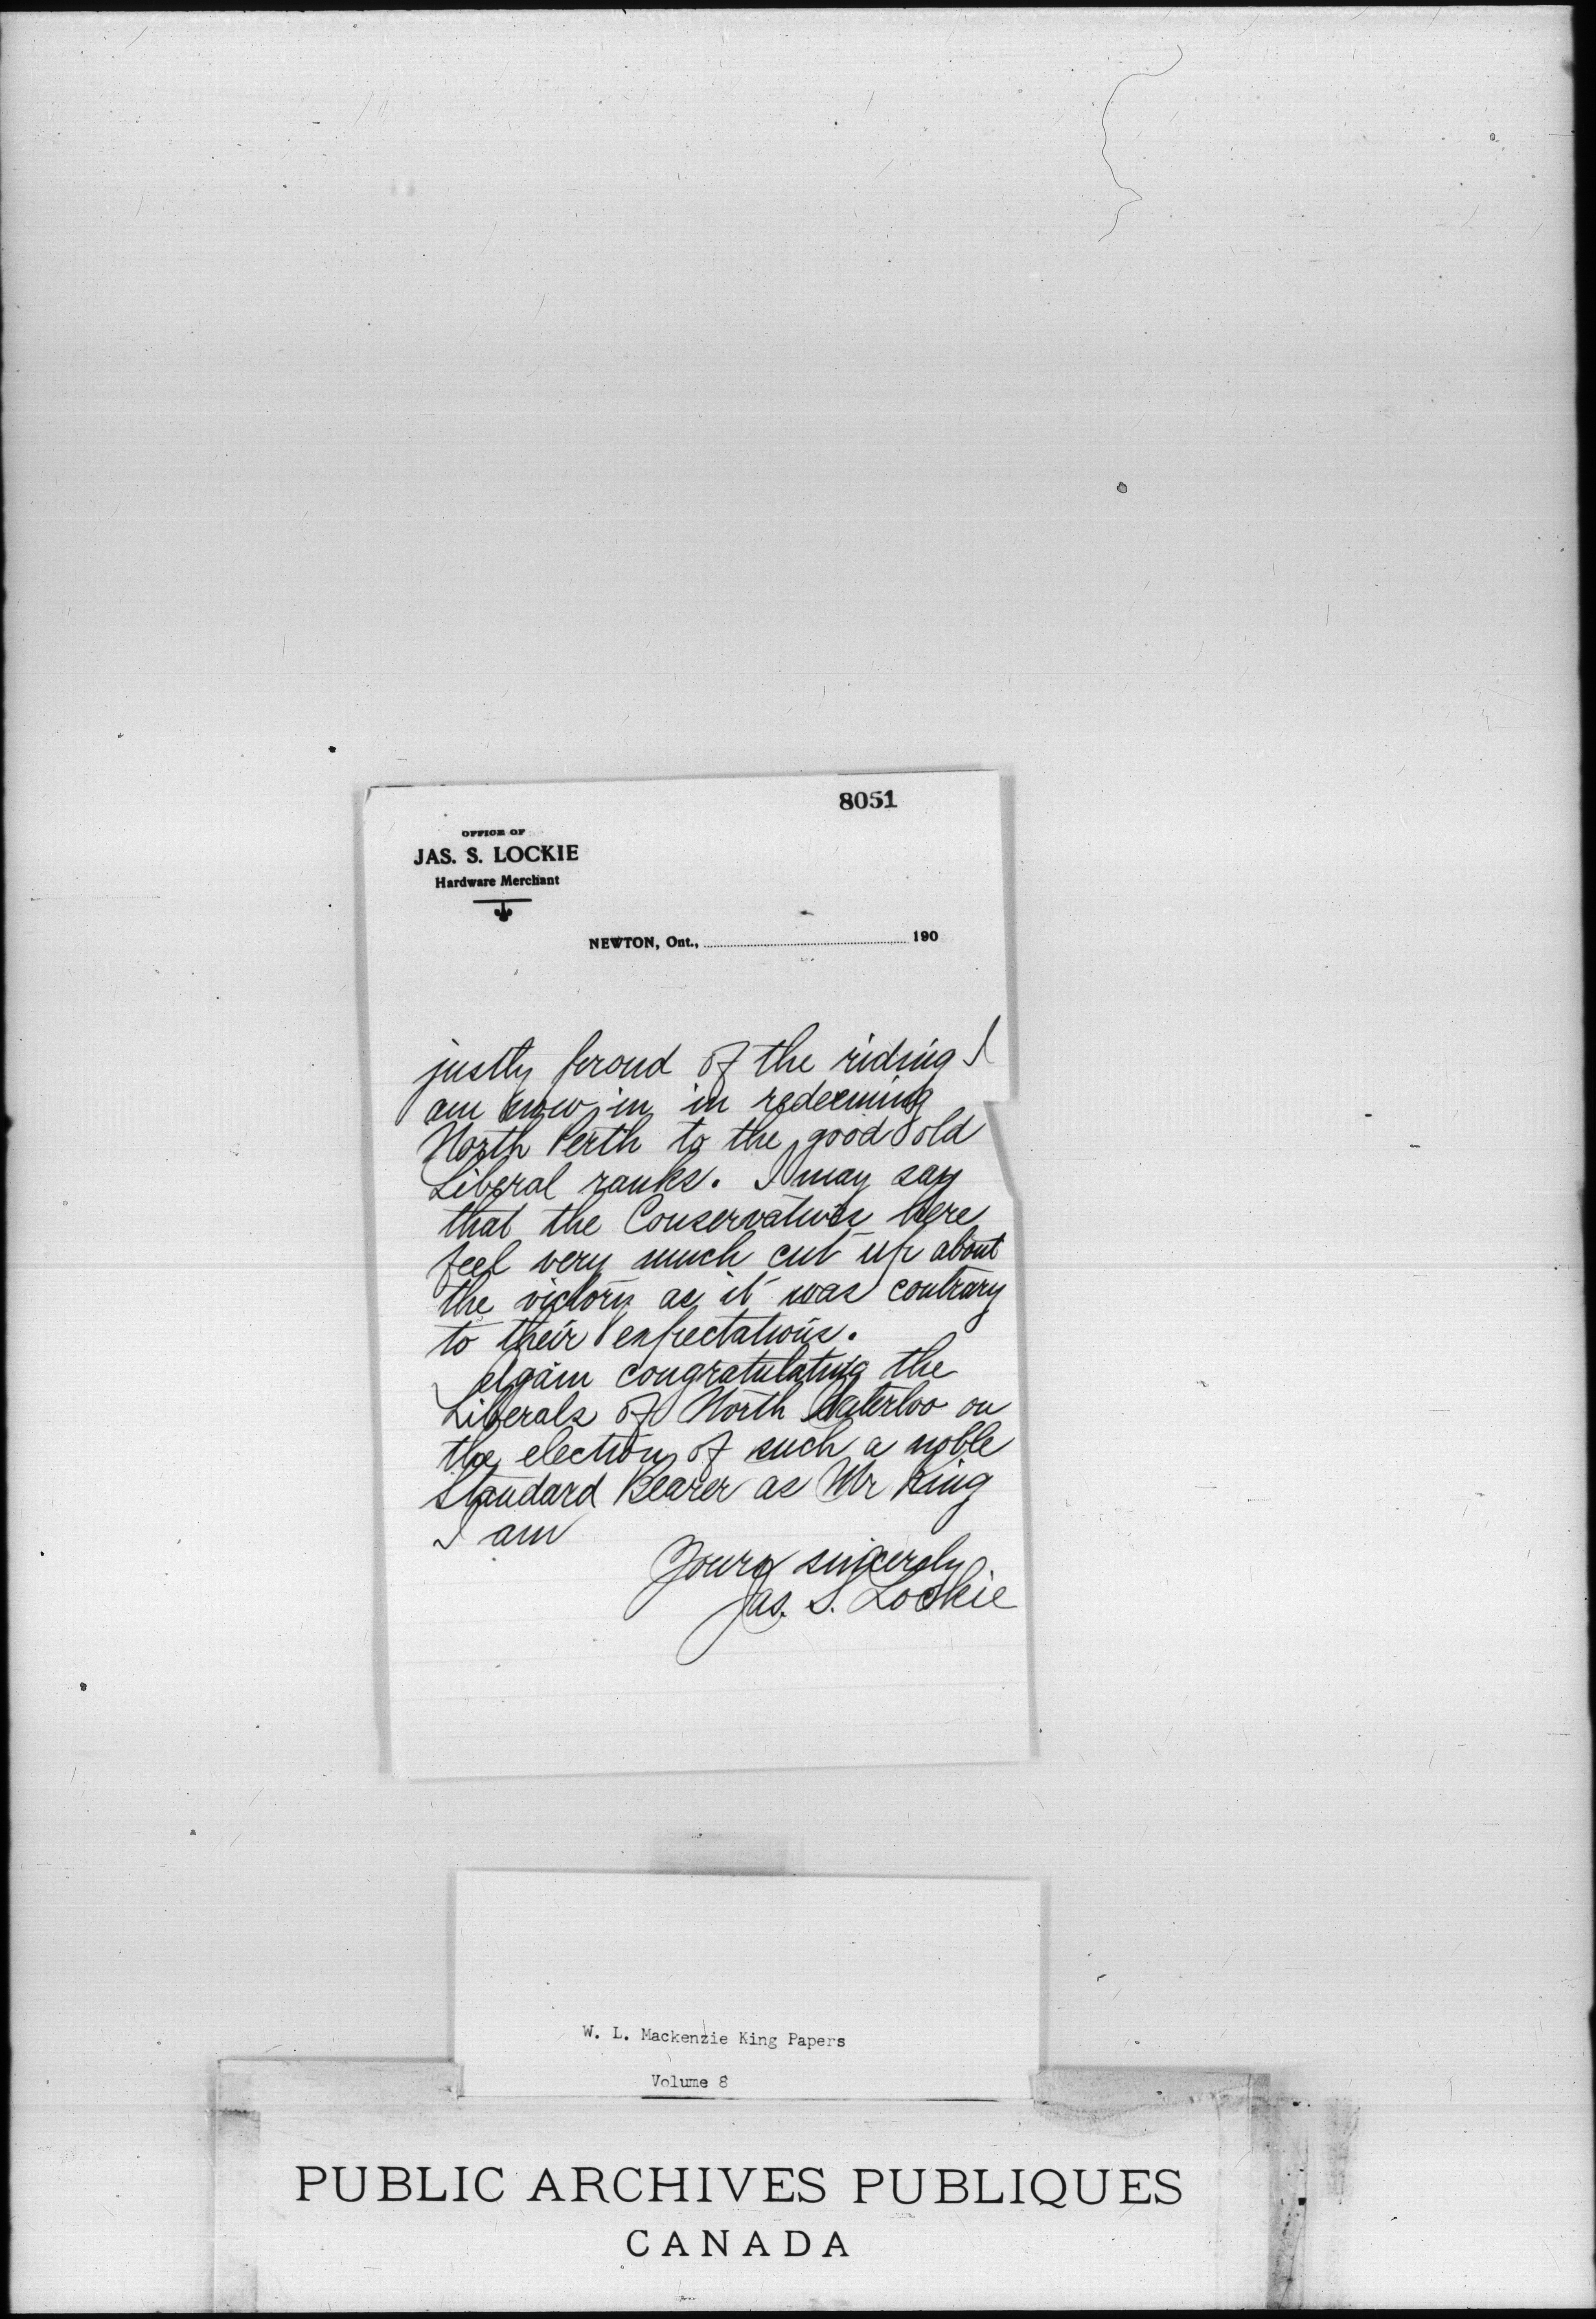 8051
OFFICE OF
JAS. S. LOCKIE
Hardware Merchant
NEWTON, Ont., 190
justly proud of the riding I
am now in in redeeming
North Perth to the good old
Liberal ranks. I may say
that the Conservatives here
feel very much cut up about
the victory as it was contrary
to their expectations.
Again congratulating the
Liberals of North Waterloo on
the election of such a noble
Standard Bearer as Mr King
I am
Yours sincerely
Jas. S. Lockie
W. L. Mackenzie King Papers
Volume 8
PUBLIC ARCHIVES PUBLIQUES
CANADA